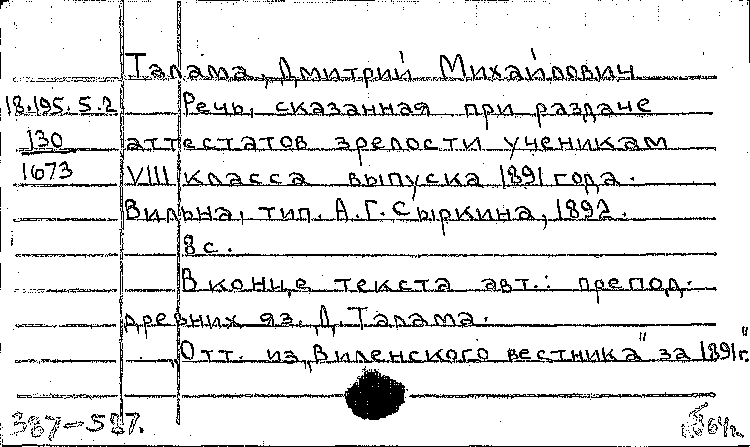 Талама, Дмитрий Михайлович
18.195.5.2 Речь, сказанная при раздаче
130 аттестатов зрелости ученикам
1673 VIII класса выпуска 1891 года.
Вильна, тип. А.Г. Сыркина, 1892.
8 с.
В конце текста авт.: препод.
древних яз. Д. Талама.
"Отт. из "Виленского вестника" за 1891 г."
387-587.